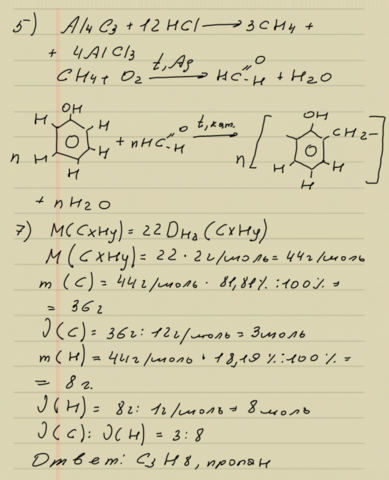 5) Al4C3 + 12HCl → 3CH4 +
+ 4AlCl3
CH4 + O2 t, Ag → HC=O-H + H2O
OH
H H
n H O H + nHC=O-H t, кат. → n [ OH CH2- O H H H ]
H
+ nH2O
7) M(CxHy) = 22DH2(CxHy)
M(CxHy) = 22 · 2г/моль = 44г/моль
m(C) = 44г/моль · 81,81% : 100% =
= 36г
ν(C) = 36г : 12г/моль = 3моль
m(H) = 44г/моль · 18,19% : 100% =
= 8г.
ν(H) = 8г : 1г/моль = 8моль
ν(C) : ν(H) = 3:8
Ответ: C3H8, пропан